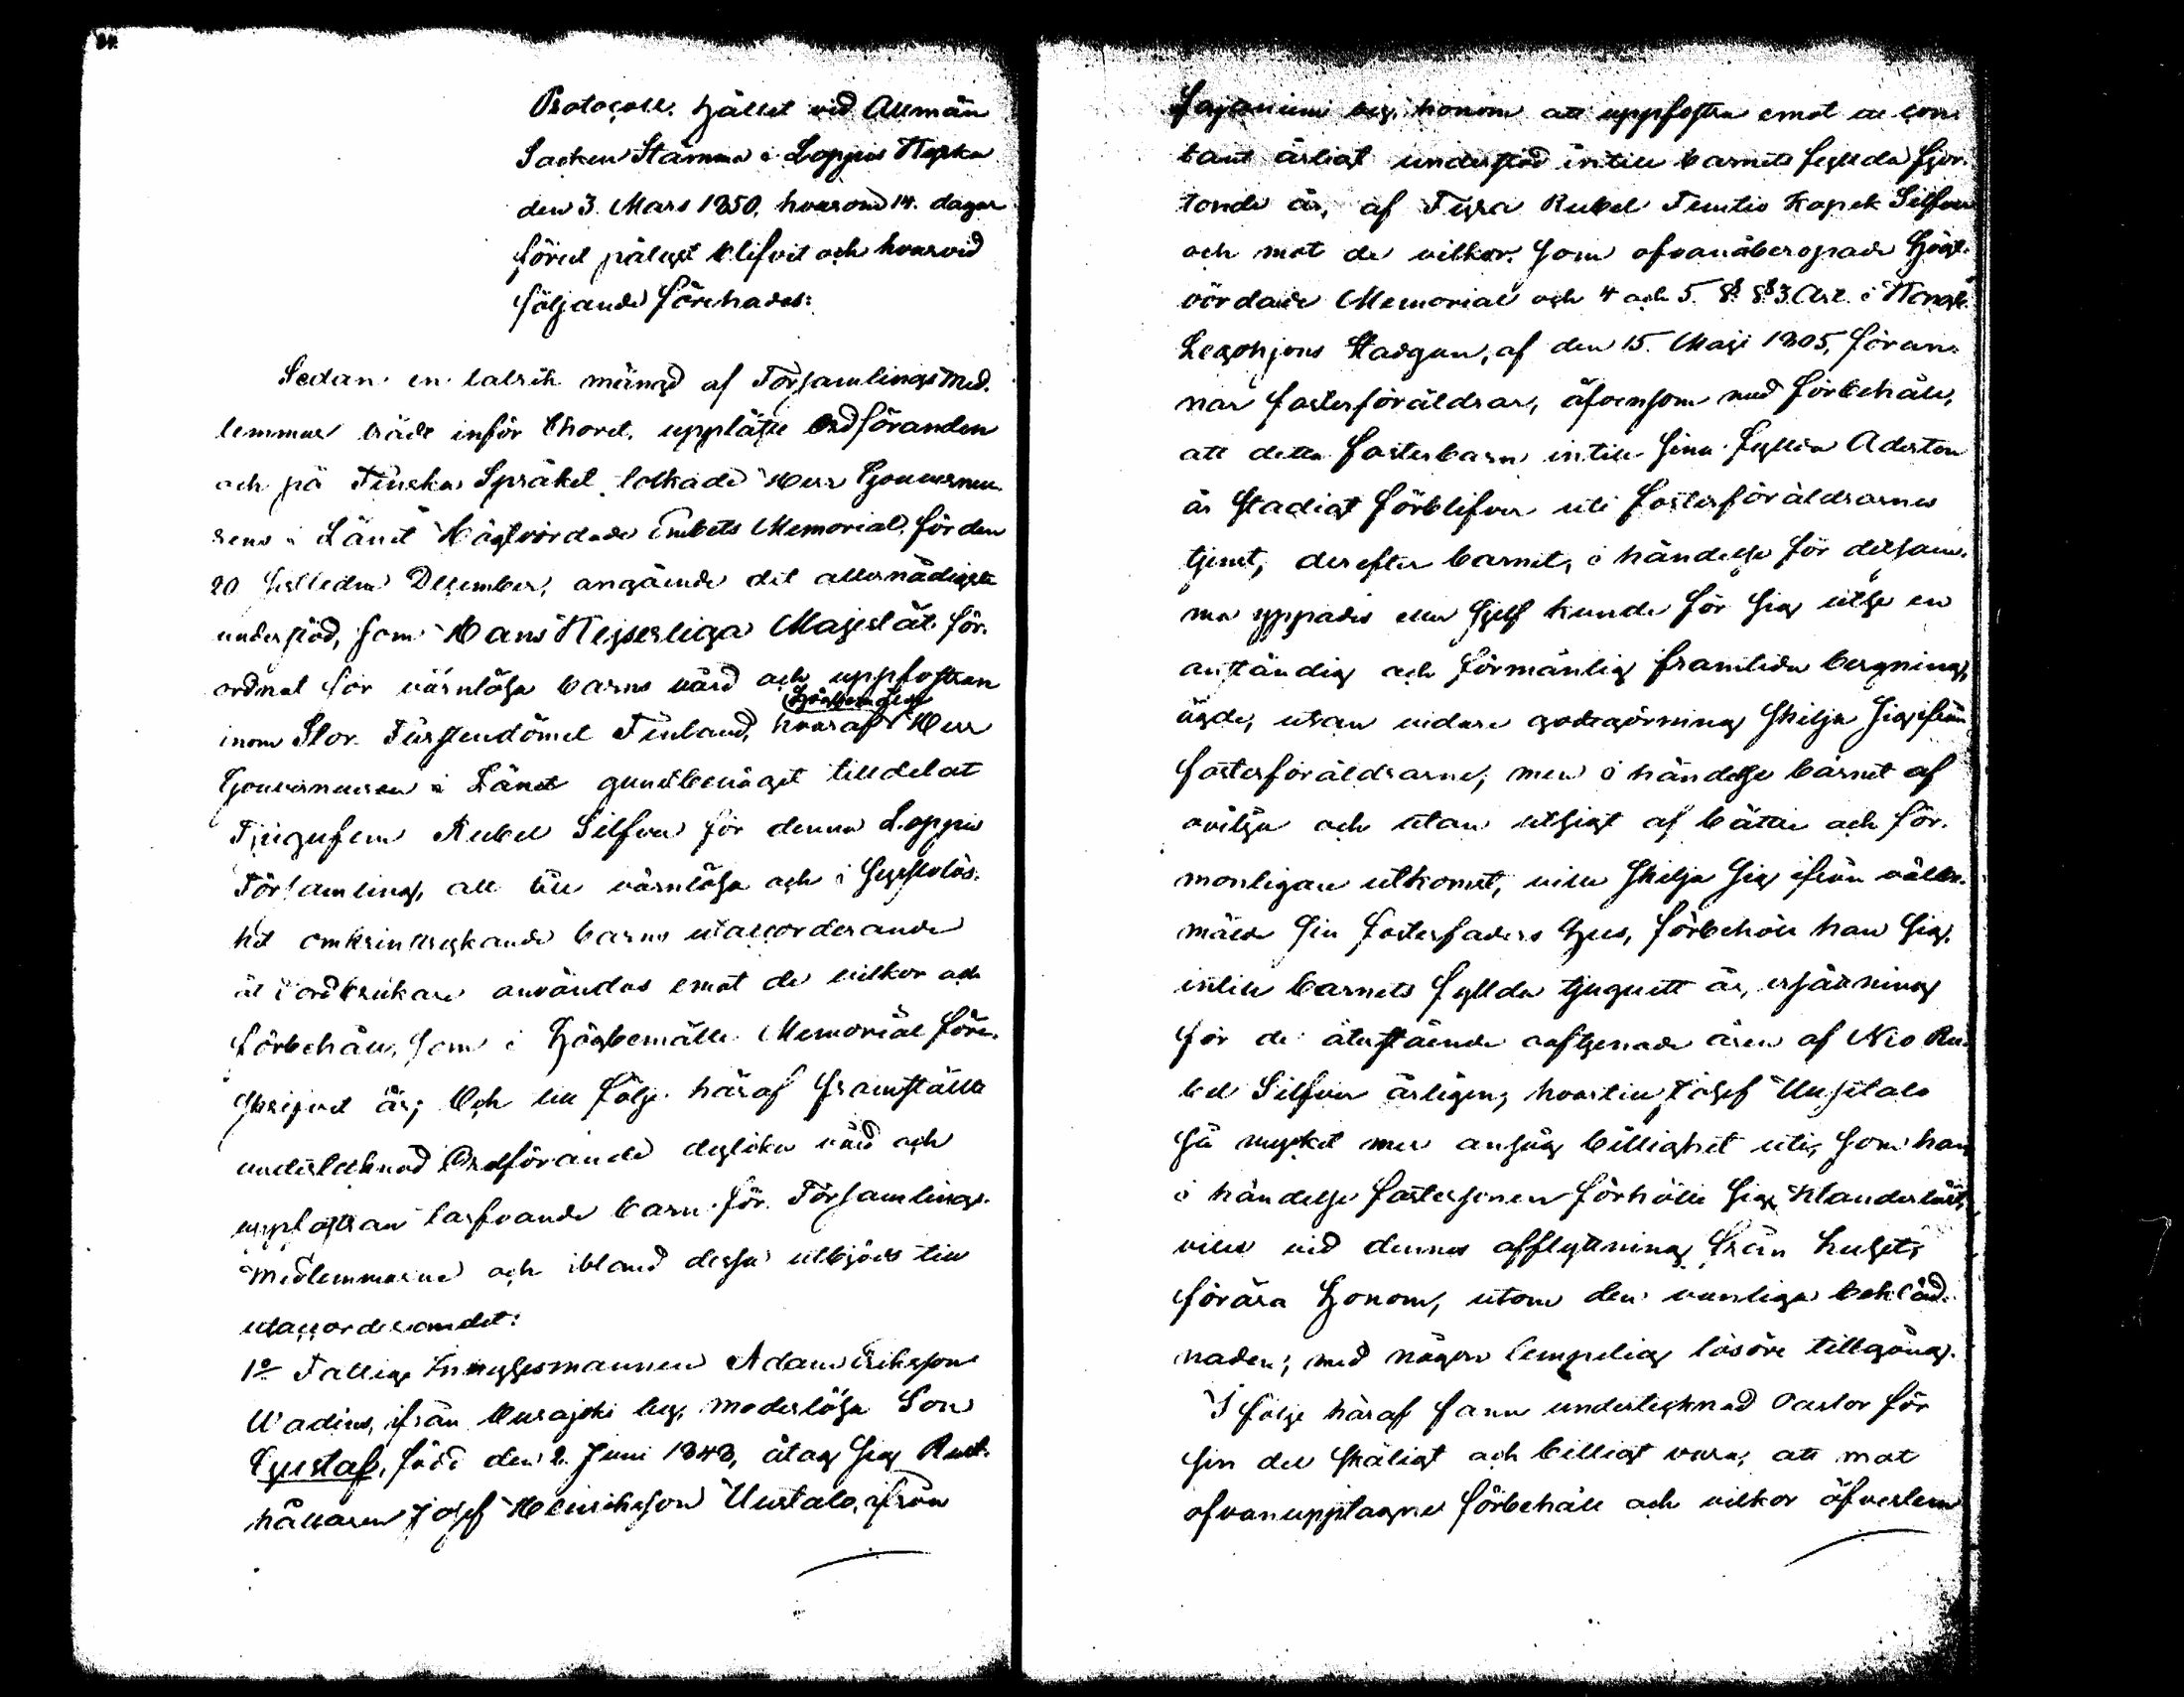 Protocoll, hållet vid Allmän
Sockne Stämma i Loppis Kyrka
den 3. Mars 1850, hvarom 14. dagar
förut pålyst blifvit och hvarvid
följande förehades:
Sedan en talrik mängd af Församlings Med-
lemmar trädt inför Choret, uppläste Ordföranden
och på Finska Språket tolkade Herr Gouverneu-
rens i Länet Högtvördade Embets Memorial, för den
20 sistledne December, angående det allernådigste
understöd, som Hans Kejserliga Majestät för-
ordnat för värnlösa barns vård och uppfostran
inom Stor-Furstendömet Finland, hvaraf Högbemälte Herr
Gouverneuren i Länet gunstbenäget tilldelat
Tjugufem Rubel Silfver för denna Loppis
Församling, att till värnlösa och i sysslolös-
het omkringstrykande barns utaccorderande
åt Jordbrukare användas emot de vilkor och
förbehåll, som i Högbemälte Memorial före-
skrifvet är; Och till följe häraf framställte
undertecknad Ordförande dyslika vård och
uppfostran tarfvande barn för Församlings-
Medlemmarne och ibland dessa utbjöds till
utaccorderandet:
1o Fattige Inhysesmannen Adam Eriksson
Wadins, ifrån Ourajoki by, moderlösa Son
Gustaf, född den 2. Juni 1843, åtog sig Rust-
hållaren Josef Henriksson Uusitalo, ifrån
Sajaniemi by, honom att uppfostra emot ett con-
tant årligt understöd intill barnets fyllda fjor-
tonde år, af Fyra Rubel Femtio Kopek Silfver
och mot de vilkor, som ofvanåberopade Högt-
vördade Memorial och 4 och 5. § § 3. Art. i Kongl.
Legohjons Stadgan, af den 15. Maji 1805, föran-
när fosterföräldrar, äfvensom med förbehåll,
att detta fosterbarn intill sina fyllda Aderton
år stadigt förblifver uti fosterföräldrarnes
tjenst, derefter barnet, i händelse för detsam-
ma yppades eller sjelf kunde för sig utse en
anständig och förmånlig framtida bergning,
ägde, utan vidare godtgörning skilja sig ifrån
fosterföräldrarne; men i händelse barnet af
ovilja och utan utsigt af bättre och för-
monligare utkomst, ville skilja sig ifrån välbe-
mälde sin fosterfaders hus, förbehöll han sig,
intill barnets fyllda tjuguett år, ersättning
för de återstående oaftjenade åren af Nio Ru-
bel Silfver årligen; hvartill Josef Uusitalo
så mycket mer ansåg billighet uti, som han
i händelse fostersonen förhölle sig klanderlöst,
ville vid dennes afflyttning från huset,
förära honom, utom den vanliga bekläd-
naden, med någon lempelig lösöre tillgång.
I följe häraf fann undertecknad Pastor för
sin del skäligt och billigt vara, att mot
ofvanupptagne förbehåll och vilkor öfverlem